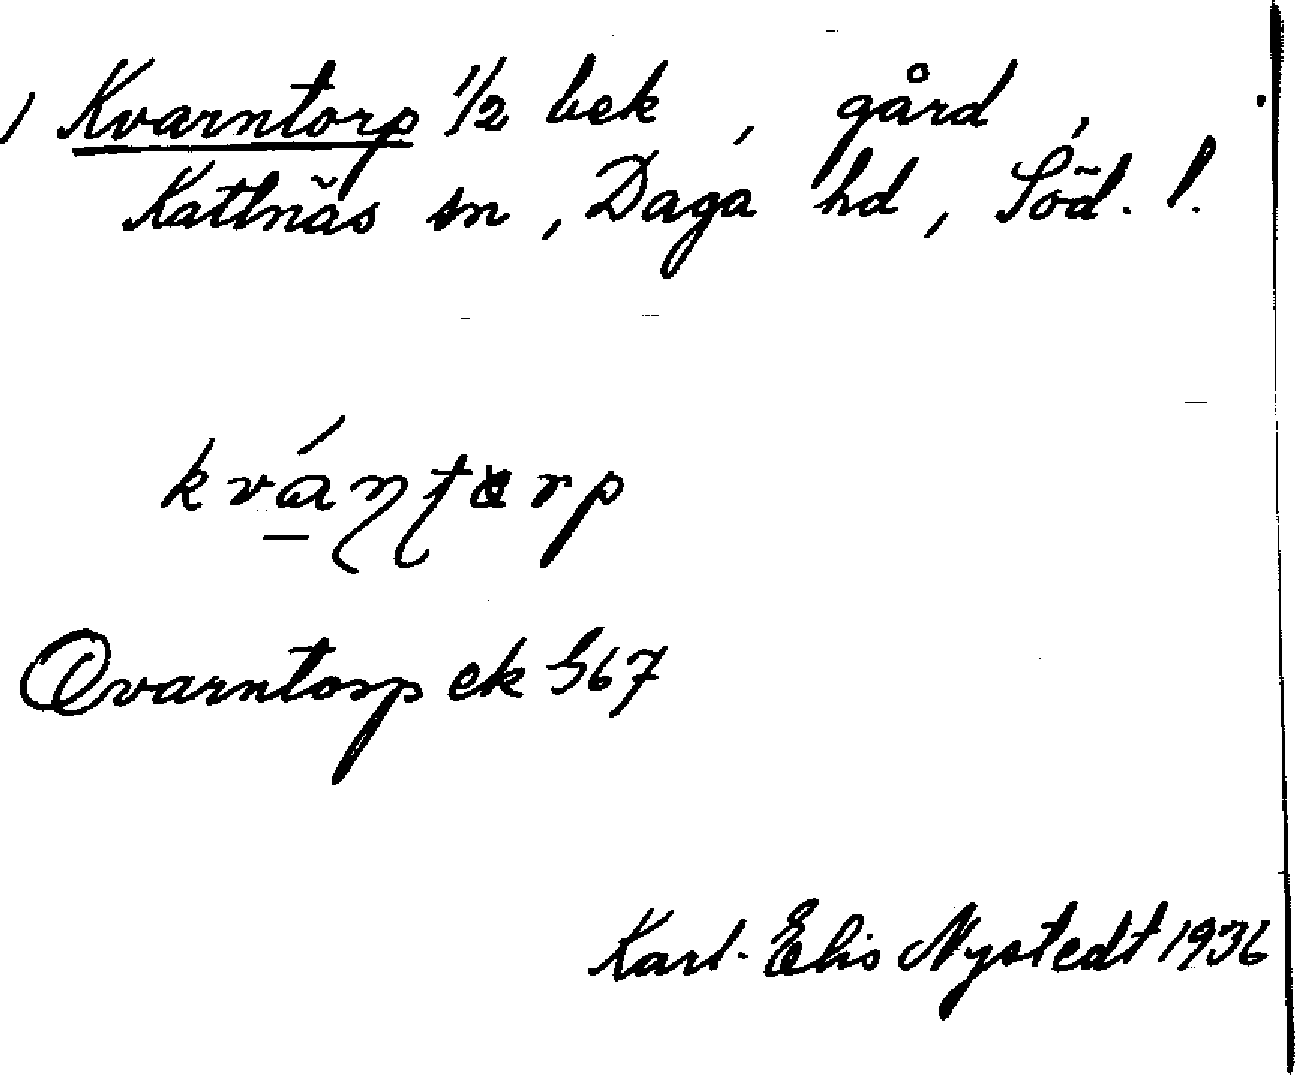 ) Kvarntorp 1/2 bek , gård ,
Kattnäs sn , Daga hd , Söd. l.
kváɳʈorp
Qvarntorp ek S67
Karl-Elis Nystedt 1936